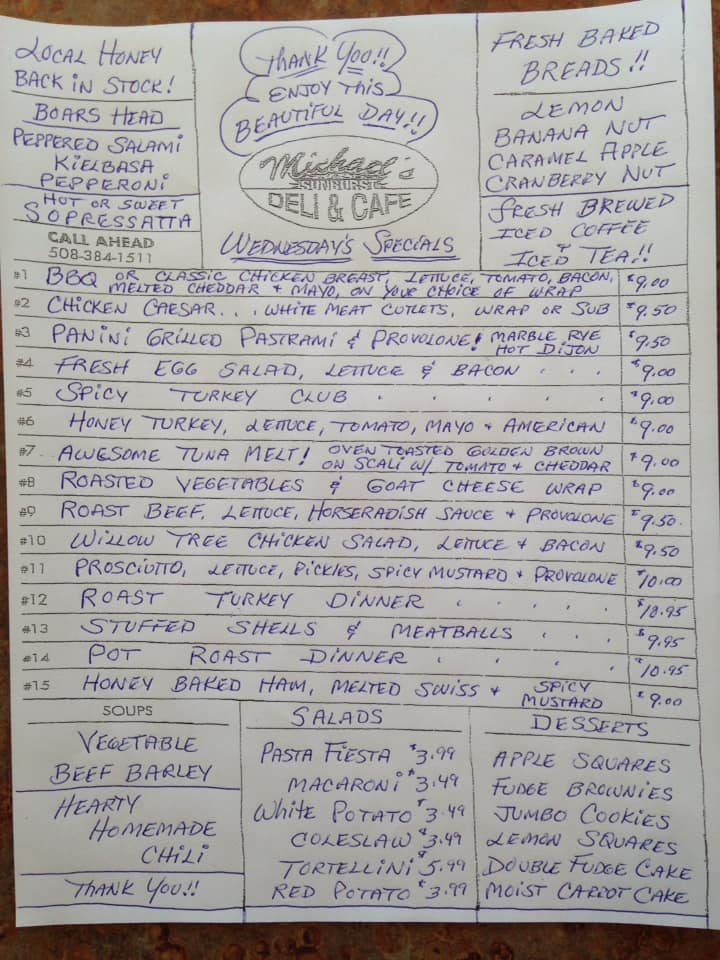 LOCAL HONEY
BACK IN STOCK!
BOARS HEAD
PEPPERED SALAMI
KIELBASA
PEPPERONI
HOT OR SWEET
SOPRESSATTA
CALL AHEAD
508-384-1511
THANK YOU!!
ENJOY THIS
BEAUTIFUL DAY!!
Michael's
SUNBURST
DELI & CAFE
WEDNESDAY'S SPECIALS
FRESH BAKED
BREADS!!
LEMON
BANANA NUT
CARAMEL APPLE
CRANBERRY NUT
FRESH BREWED
ICED COFFEE
+
ICED TEA!!
#1 BBQ OR CLASSIC CHICKEN BREAST, LETTUCE, TOMATO, BACON,
MELTED CHEDDAR + MAYO, ON YOUR CHOICE OF WRAP $9.00
#2 CHICKEN CAESAR... WHITE MEAT CUTLETS, WRAP OR SUB $9.50
#3 PANINI GRILLED PASTRAMI & PROVOLONE! MARBLE RYE
HOT DIJON $9.50
#4 FRESH EGG SALAD, LETTUCE & BACON . . . $9.00
#5 SPICY TURKEY CLUB . . . . . . $9.00
#6 HONEY TURKEY, LETTUCE, TOMATO, MAYO & AMERICAN $9.00
#7 AWESOME TUNA MELT! OVEN TOASTED GOLDEN BROWN
ON SCALI W/ TOMATO + CHEDDAR $9.00
#8 ROASTED VEGETABLES & GOAT CHEESE WRAP $9.00
#9 ROAST BEEF, LETTUCE, HORSERADISH SAUCE + PROVOLONE $9.50
#10 WILLOW TREE CHICKEN SALAD, LETTUCE + BACON $9.50
#11 PROSCIUTTO, LETTUCE, PICKLES, SPICY MUSTARD + PROVOLONE $10.00
#12 ROAST TURKEY DINNER . . . . . $10.95
#13 STUFFED SHELLS & MEATBALLS . . . $9.95
#14 POT ROAST DINNER . . . . . $10.95
#15 HONEY BAKED HAM, MELTED SWISS + SPICY
MUSTARD $9.00
SOUPS
VEGETABLE
BEEF BARLEY
HEARTY
HOMEMADE
CHILI
THANK YOU!!
SALADS
PASTA FIESTA $3.99
MACARONI $3.49
WHITE POTATO $3.49
COLESLAW $3.49
TORTELLINI $5.99
RED POTATO $3.99
DESSERTS
APPLE SQUARES
FUDGE BROWNIES
JUMBO COOKIES
LEMON SQUARES
DOUBLE FUDGE CAKE
MOIST CARROT CAKE